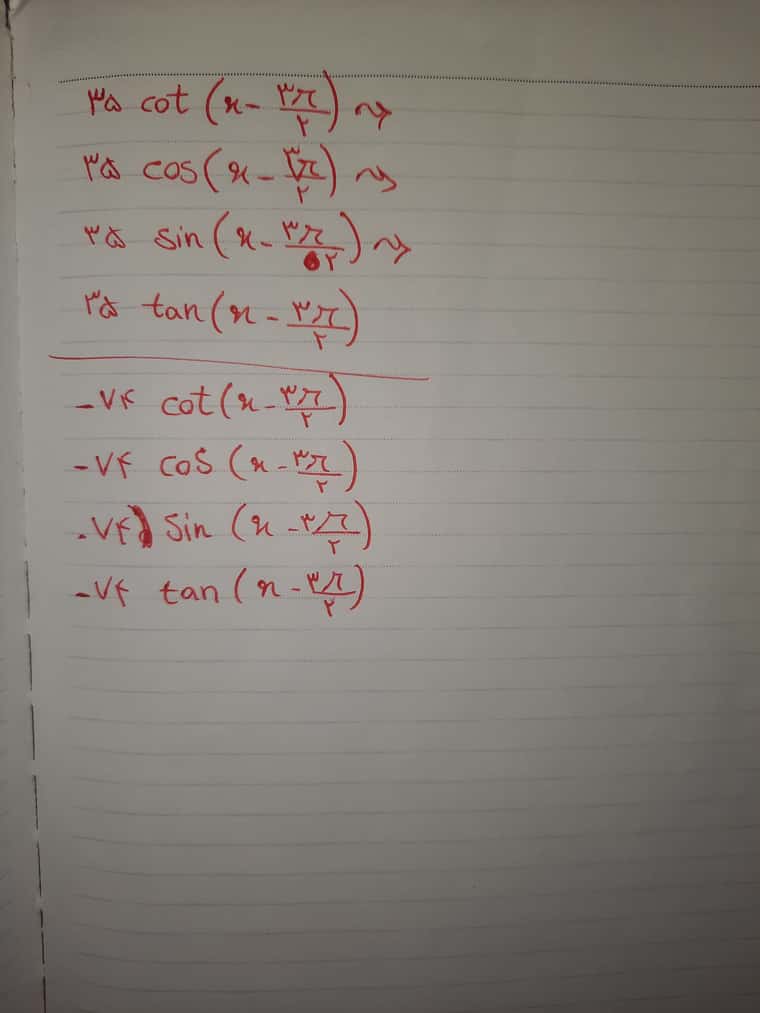 ۳۵ cot (x - ۳π/۲) ⇝
۳۵ cos (x - ۳π/۲) ⇝
۳۵ sin (x - ۳π/۲) ⇝
۳۵ tan (x - ۳π/۲)
-۷۴ cot (x - ۳π/۲)
-۷۴ cos (x - ۳π/۲)
-۷۴ sin (x - ۳π/۲)
-۷۴ tan (x - ۳π/۲)